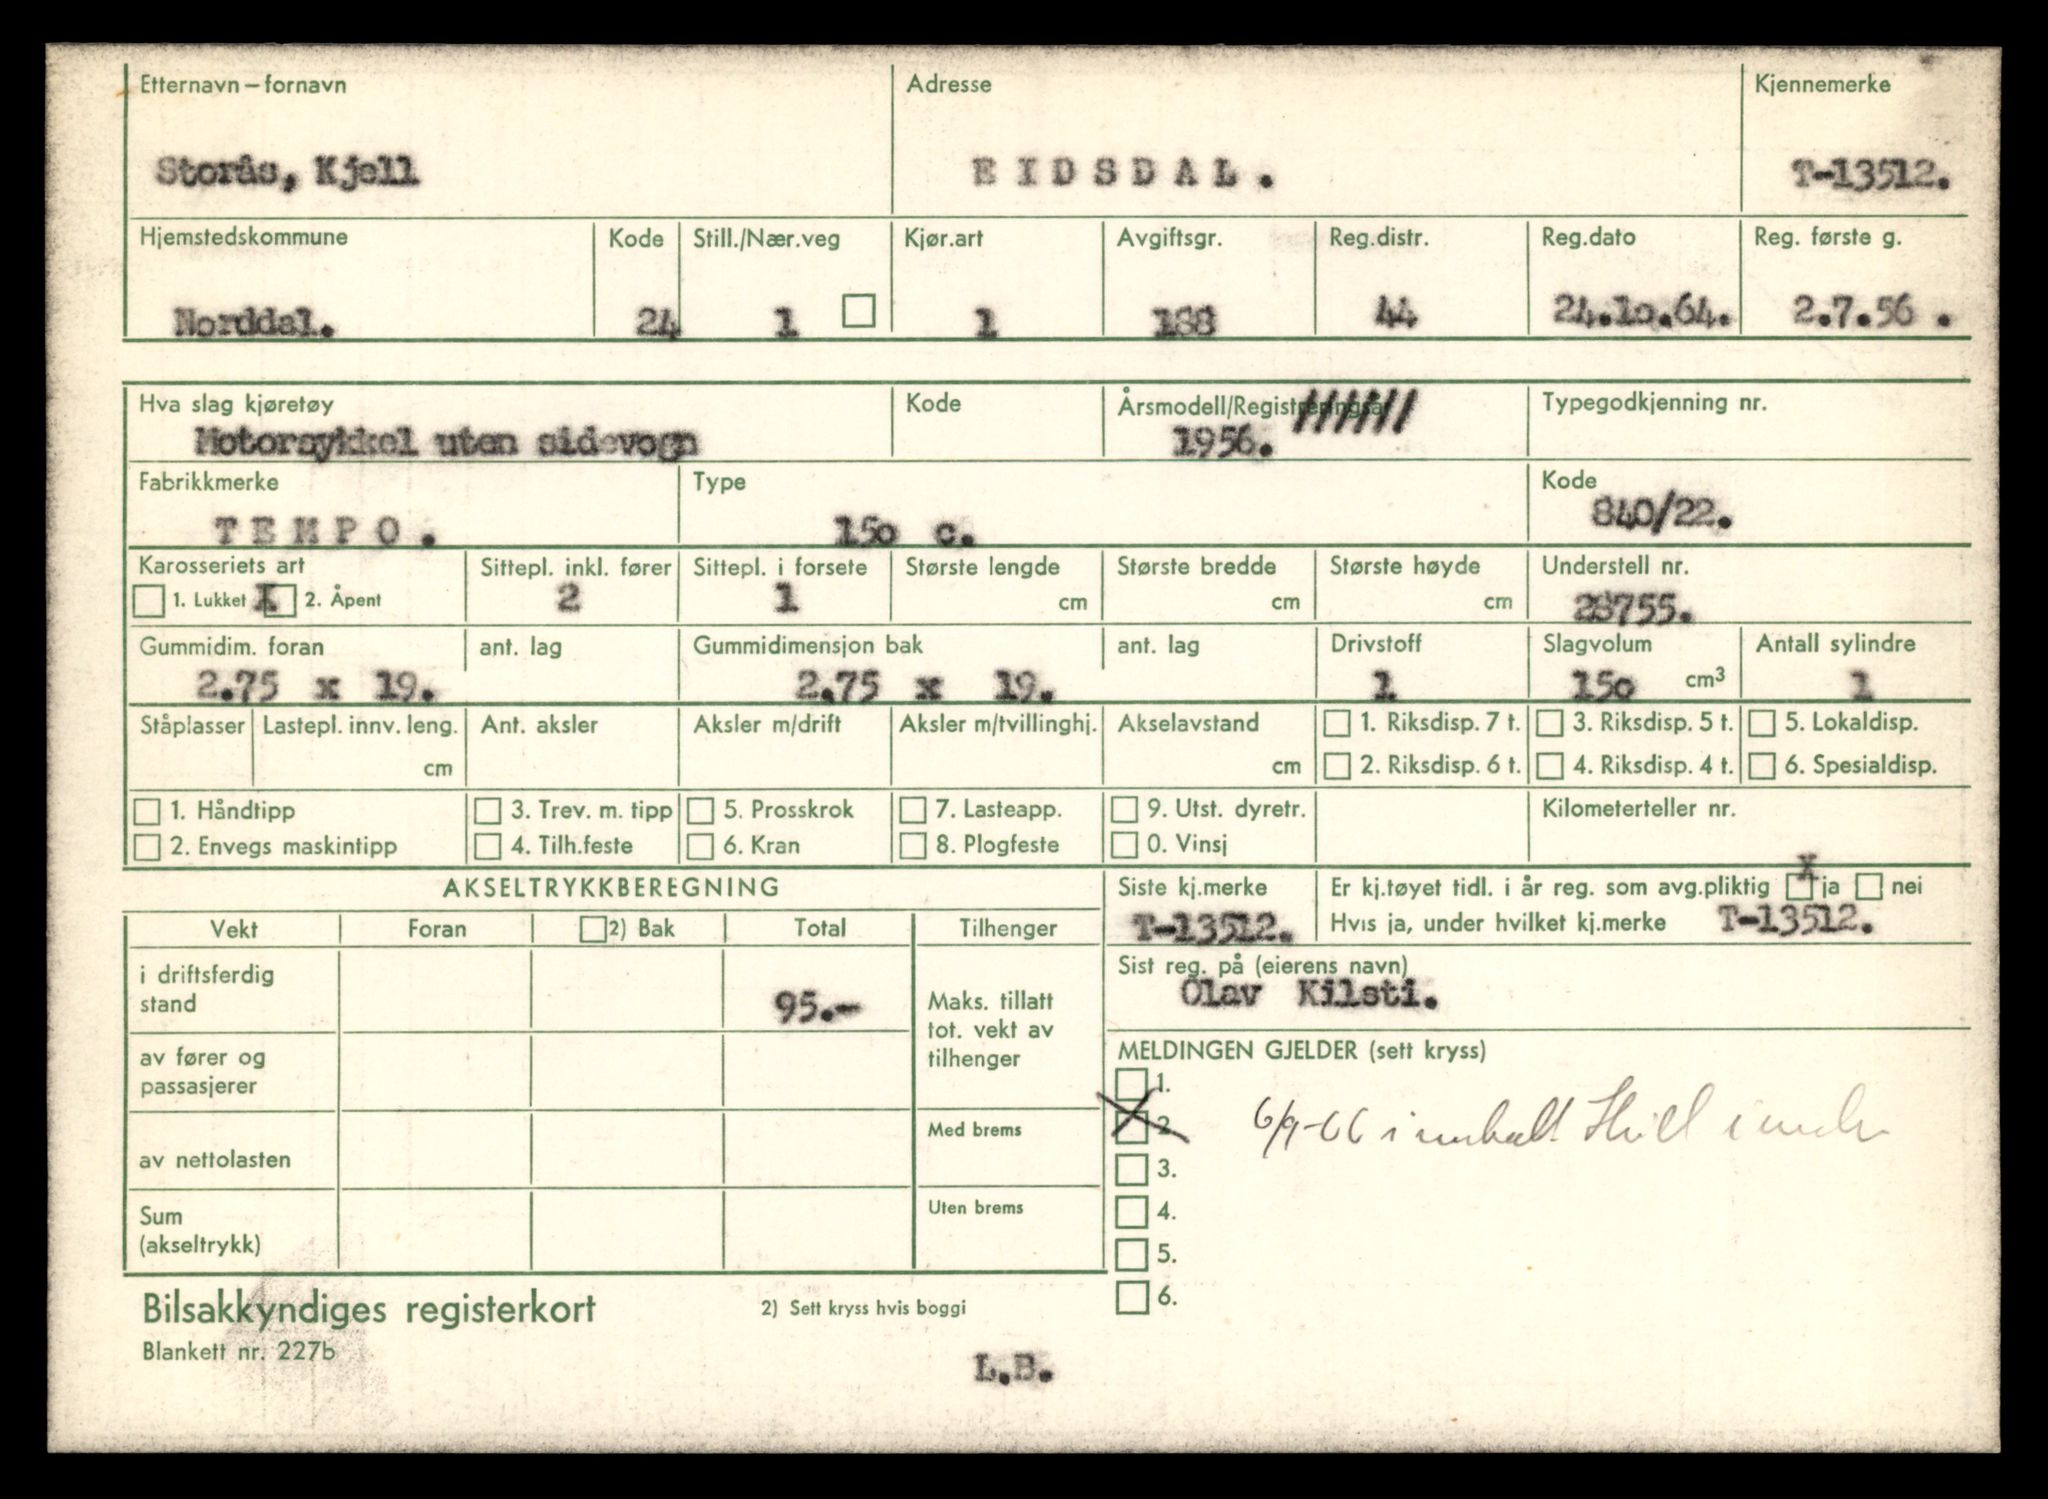 Etternavn – fornavn Adresse Kjennemerke
Storås, Kjell EIDSDAL. T-13512.
Hjemstedskommune Kode Still./Nær.veg Kjør.art Avgiftsgr. Reg.distr. Reg.dato Reg. første g.
Norddal. 24 1 1 188 44 24.1o.64. 2.7.56 .
Hva slag kjøretøy Kode Årsmodell/Registreringsår ////// Typegodkjenning nr.
Motorsykkel uten sidevogn 1956.
Fabrikkmerke Type Kode
TEMPO. 15o c. 840/22.
Karosseriets art Sittepl. inkl. fører Sittepl. i forsete Største lengde Største bredde Største høyde Understell nr.
1. Lukket X 2. Åpent 2 1 cm cm cm 28755.
Gummidim. foran ant. lag Gummidimensjon bak ant. lag Drivstoff Slagvolum Antall sylindre
2.75 x 19. 2.75 x 19. 1 15o cm3 1
Ståplasser Lastepl. innv. leng. Ant. aksler Aksler m/drift Aksler m/tvillinghj. Akselavstand 1. Riksdisp. 7 t. 3. Riksdisp. 5 t. 5. Lokaldisp.
cm cm 2. Riksdisp. 6 t. 4. Riksdisp. 4 t. 6. Spesialdisp.
1. Håndtipp 3. Trev. m. tipp 5. Prosskrok 7. Lasteapp. 9. Utst. dyretr. Kilometerteller nr.
2. Envegs maskintipp 4. Tilh.feste 6. Kran 8. Plogfeste 0. Vinsj
AKSELTRYKKBEREGNING Siste kj.merke Er kj.tøyet tidl. i år reg. som avg.pliktig x ja nei
T-13512. Hvis ja, under hvilket kj.merke T-13512.
Vekt Foran 2) Bak Total Tilhenger
Sist reg. på (eierens navn)
Olav Kilsti.
i driftsferdig stand 95.-
Maks. tillatt tot. vekt av tilhenger
av fører og passasjerer
MELDINGEN GJELDER (sett kryss)
1.
2. 6/9-66
3.
4.
5.
6.
Med brems
av nettolasten
Uten brems
Sum (akseltrykk)
Bilsakkyndiges registerkort 2) Sett kryss hvis boggi
Blankett nr. 227b
L.B.